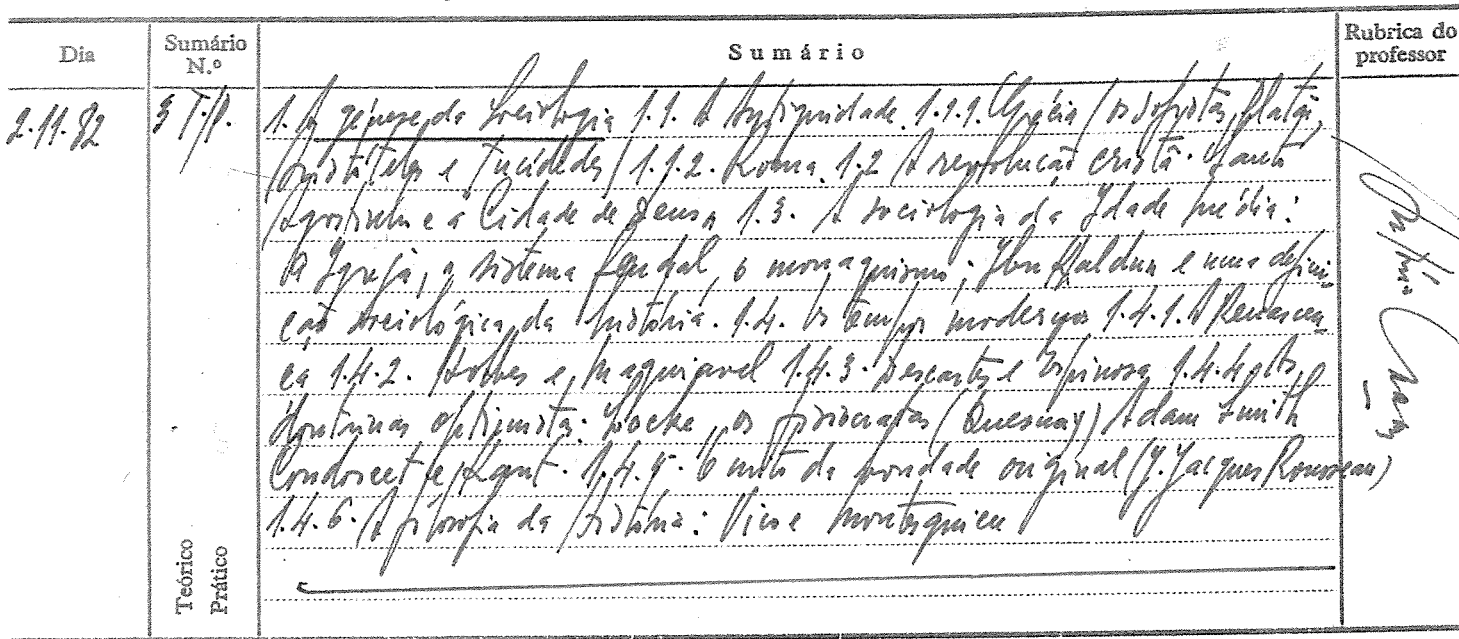 Dia
Sumário N.º
Sumário
Rubrica do professor
2.11.82
3 T/P.
1. A génese da Sociologia 1.1. A Antiguidade. 1.1.1. Grécia (os sofistas, Platão,
Aristóteles e Tucídedes) 1.1.2. Roma. 1.2 A revolução cristã. Santo
Agostinho e a Cidade de Deus. 1.3. A sociologia da Idade Média:
A Igreja, o sistema feudal, o monaquismo; Ibn Haldun e uma defini-
ção sociológica da história. 1.4. Os tempos modernos 1.4.1. A Renascen-
ça 1.4.2. Hobbes e Maquiavel 1.4.3. Descartes e Espinosa 1.4.4. As
doutrinas optimistas: Locke, os fisiocratas (Quesnay) Adam Smith
Condorcet e Kant. 1.4.5. O mito da bondade original (J. Jacques Rousseau)
1.4.6. A filosofia da história: Vico e Montesquieu
Teórico
Prático